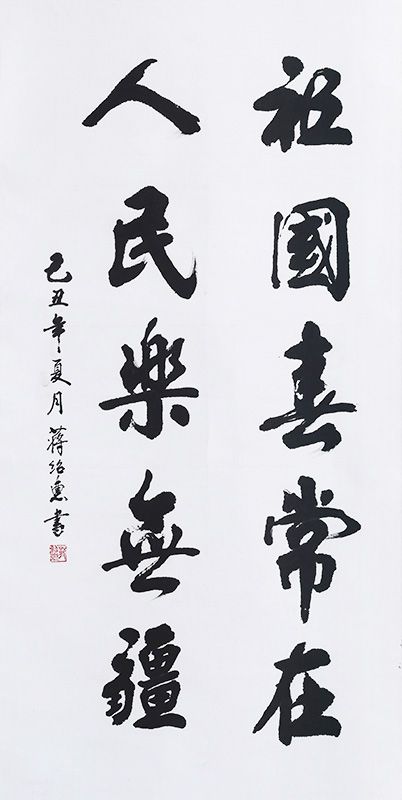 祖國春常在
人民樂無疆
己丑年夏月蔣紹惠書